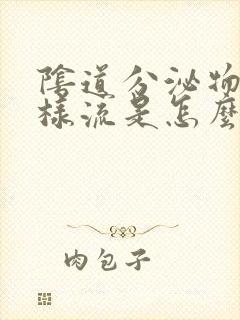 陰道分泌物
樣流是怎麼
肉包子